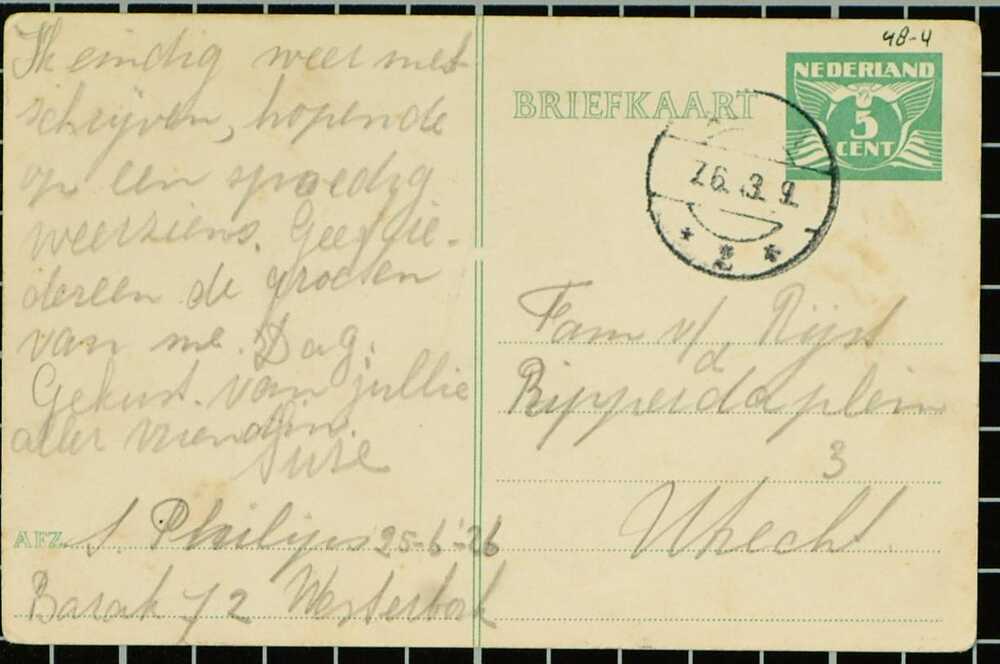 Ik eindig weer met
schrijven, hopende
op een spoedig
weerziens. Geef ie-
dereen de groeten
van me. Dag.
Gekust. van jullie
aller vriendin.
Suze
AFZ. S. Philips 25-6-'26
Barak 72 Westerbork
48-4
NEDERLAND
5
CENT
BRIEFKAART
26.3.9.
* 2 *
Fam v/d Rijst
Ripperdaplein
3
Utrecht.